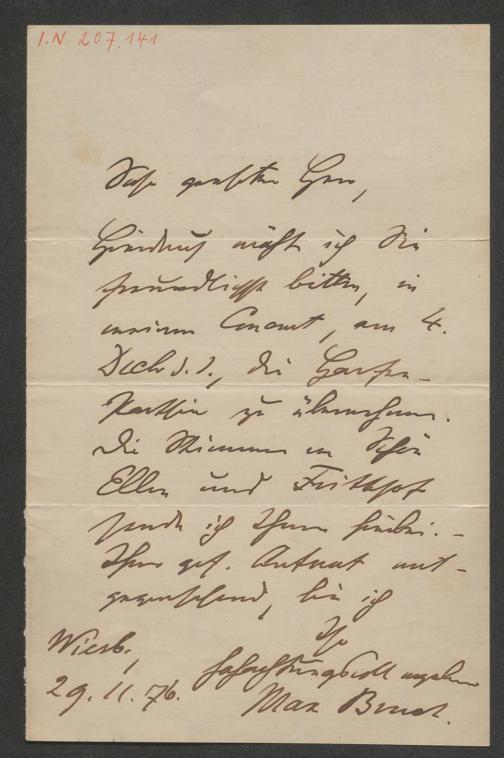 I.N. 207.141
Sehr geehrter Herr,
Hierdurch möcht ich Sie
freundlichst bitten, in
meinem Concert, am 4.
Decbr d. J., die Harfen-
Parthie zu übernehmen.
Die Stimmen zu Schön
Ellen und Frithjof
sende ich Ihnen hiebei. –
Ihrer gef. Antwort ent-
gegensehend, bin ich
Ihr
hochachtungsvoll ergebener
Wiesb.,
29. 11. 76.
Max Bruch.